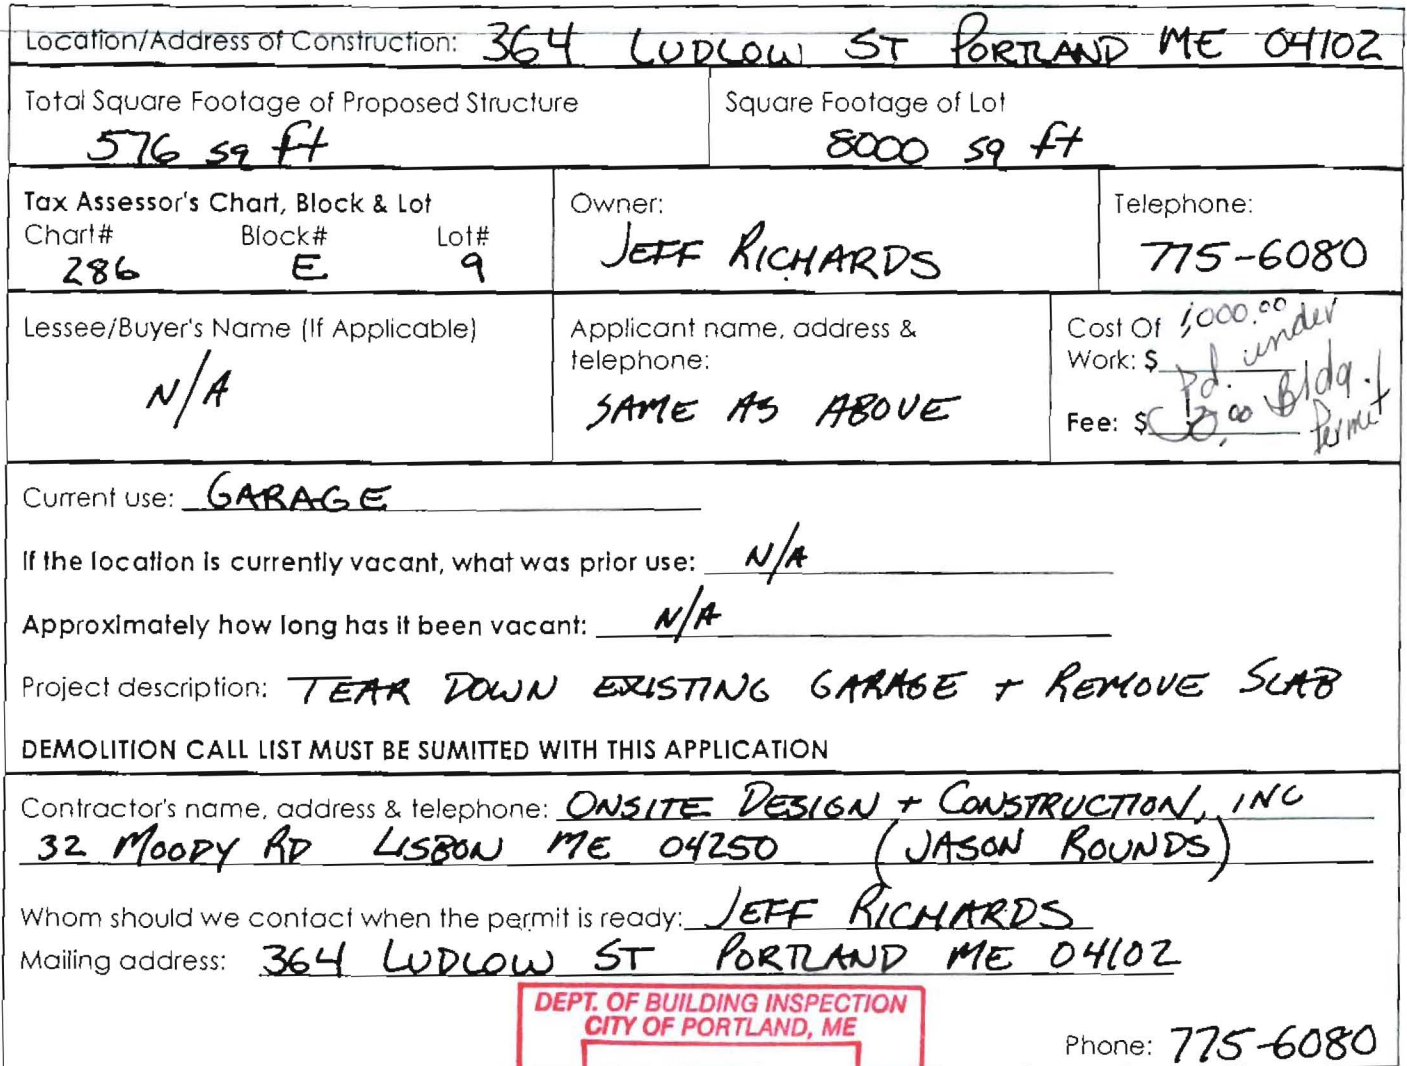 Location/Address of Construction: 364 LUDLOW ST PORTLAND ME 04102
Total Square Footage of Proposed Structure
576 sq ft
Square Footage of Lot
8000 sq ft
Tax Assessor's Chart, Block & Lot
Chart# Block# Lot#
286 E 9
Owner:
JEFF RICHARDS
Telephone:
775-6080
Lessee/Buyer's Name (If Applicable)
N/A
Applicant name, address &
telephone:
SAME AS ABOVE
Cost Of 1,000.00
Work: $
Pd. under
Bldg.
Permit
Fee: $
Current use: GARAGE
If the location is currently vacant, what was prior use: N/A
Approximately how long has it been vacant: N/A
Project description: TEAR DOWN EXISTING GARAGE + REMOVE SLAB
DEMOLITION CALL LIST MUST BE SUMITTED WITH THIS APPLICATION
Contractor's name, address & telephone: ONSITE DESIGN + CONSTRUCTION, INC
32 MOODY RD LISBON ME 04250 (JASON ROUNDS)
Whom should we contact when the permit is ready: JEFF RICHARDS
Mailing address: 364 LUDLOW ST PORTLAND ME 04102
DEPT. OF BUILDING INSPECTION
CITY OF PORTLAND, ME
Phone: 775-6080